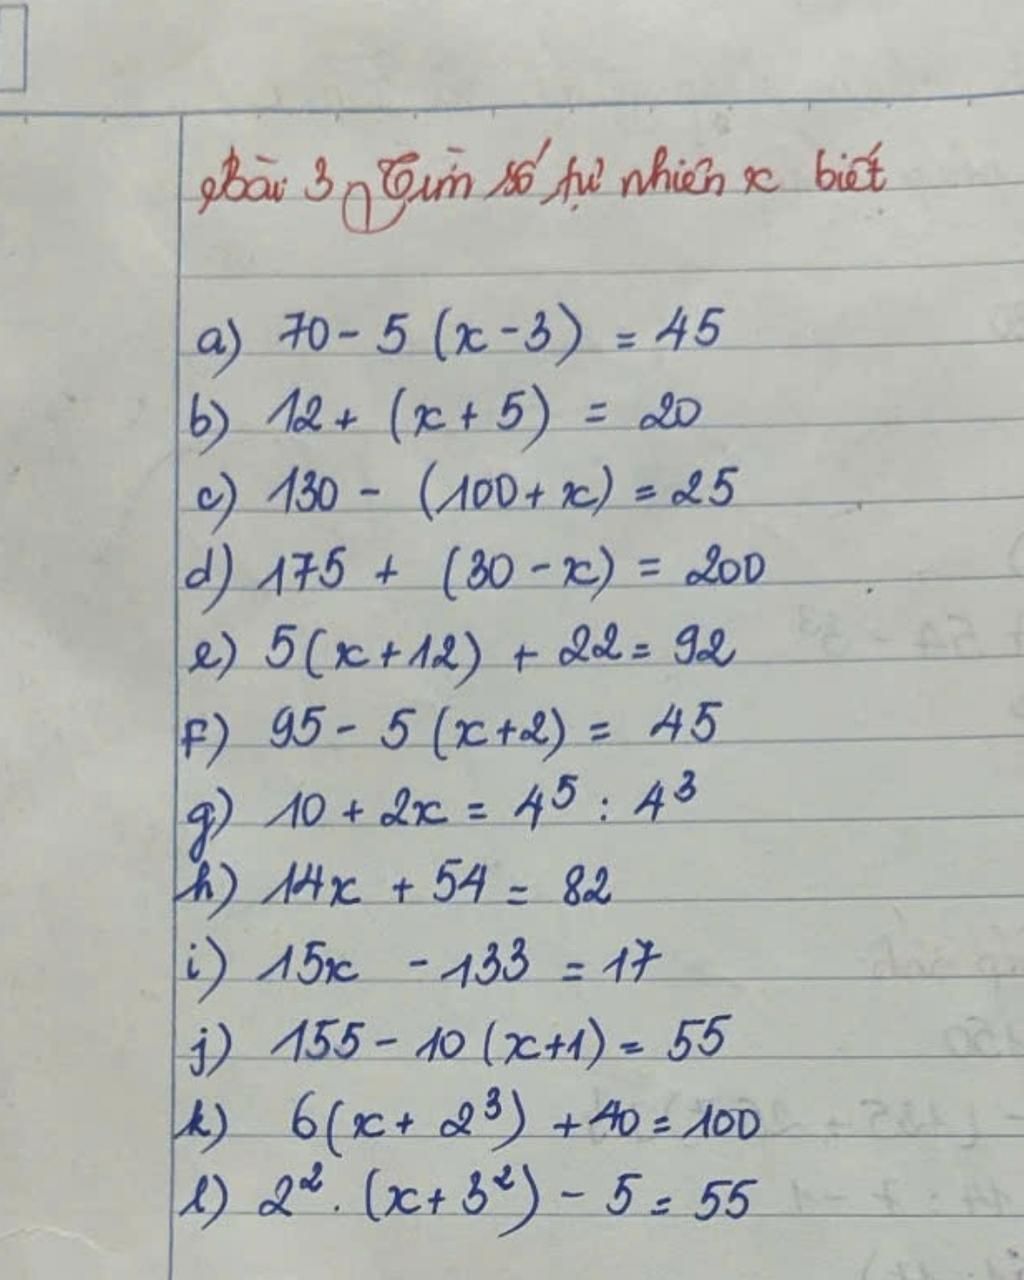 Bài 3, Tìm số tự nhiên x biết
a) 70 - 5 (x - 3) = 45
b) 12 + (x + 5) = 20
c) 130 - (100 + x) = 25
d) 175 + (30 - x) = 200
e) 5(x + 12) + 22 = 92
f) 95 - 5 (x + 2) = 45
g) 10 + 2x = 4⁵ : 4³
h) 14x + 54 = 82
i) 15x - 133 = 17
j) 155 - 10 (x + 1) = 55
k) 6(x + 2³) + 40 = 100
l) 2² . (x + 3²) - 5 = 55